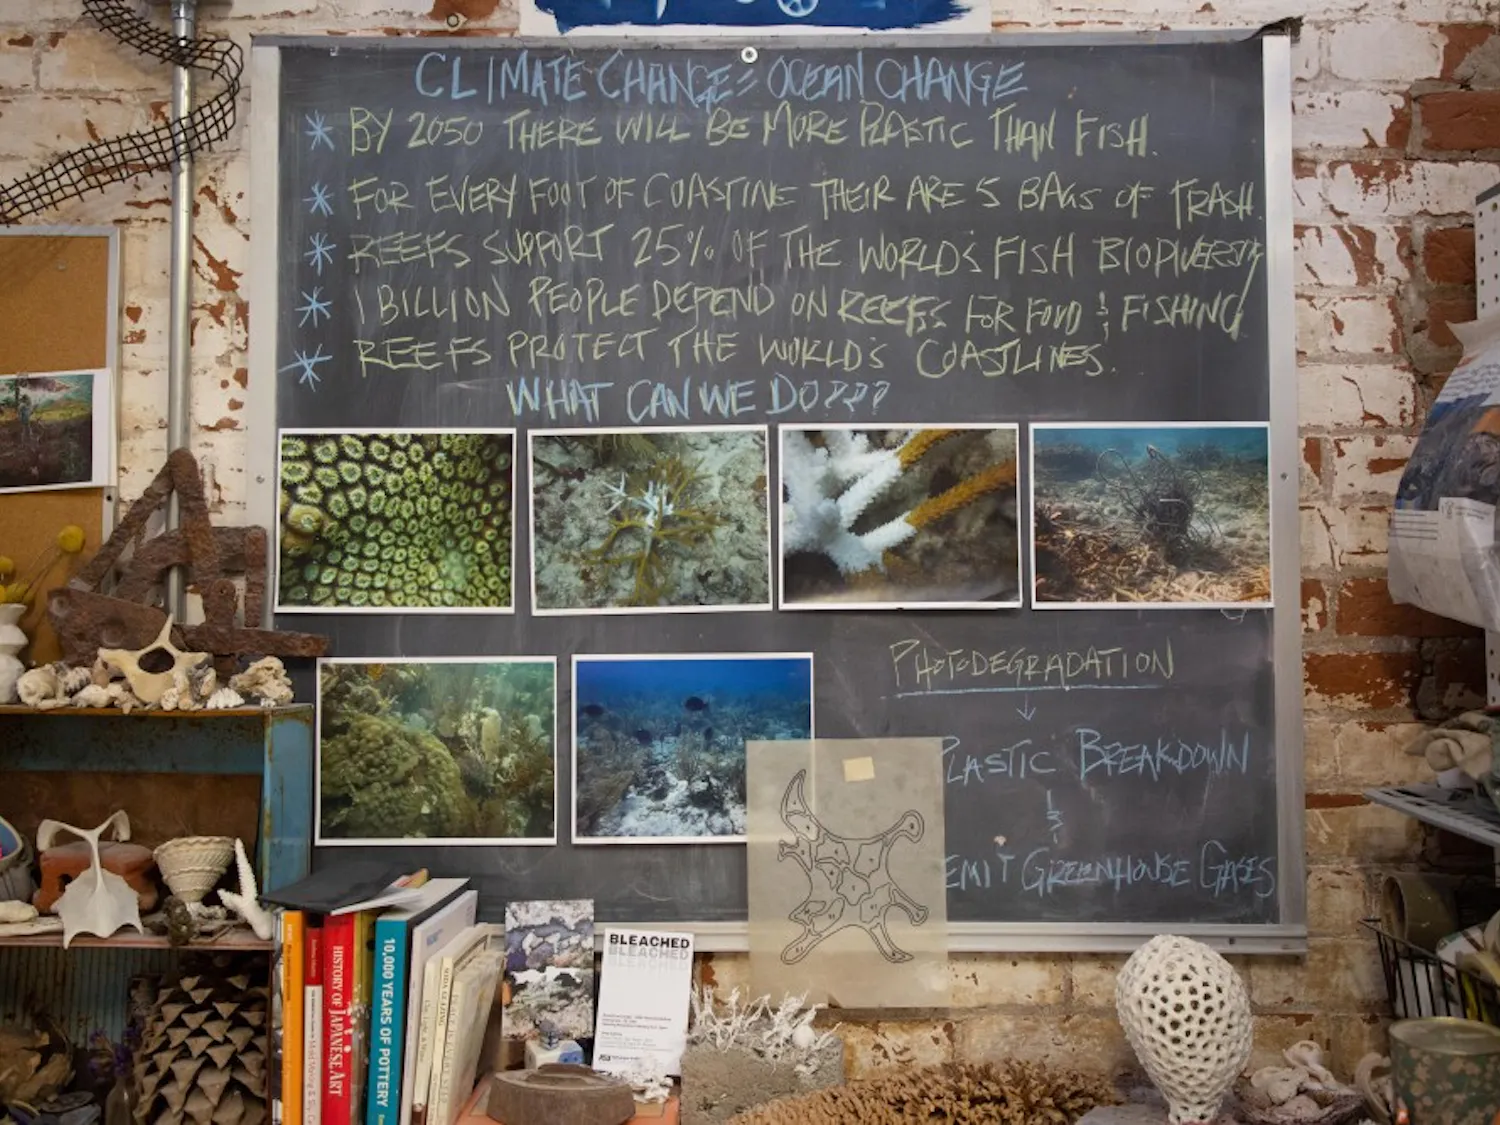 CLIMATE CHANGE = OCEAN CHANGE
* BY 2050 THERE WILL BE MORE PLASTIC THAN FISH.
* FOR EVERY FOOT OF COASTINE THEIR ARE 5 BAGS OF TRASH.
* REEFS SUPPORT 25% OF THE WORLD'S FISH BIODIVERSITY
* 1 BILLION PEOPLE DEPEND ON REEFS FOR FOOD & FISHING
* REEFS PROTECT THE WORLD'S COASTLINES.
WHAT CAN WE DO???
PHOTODEGRADATION
↓
PLASTIC BREAKDOWN
&
EMIT GREENHOUSE GASES
HISTORY OF JAPANESE ART
10,000 YEARS OF POTTERY
BLEACHED
BLEACHED